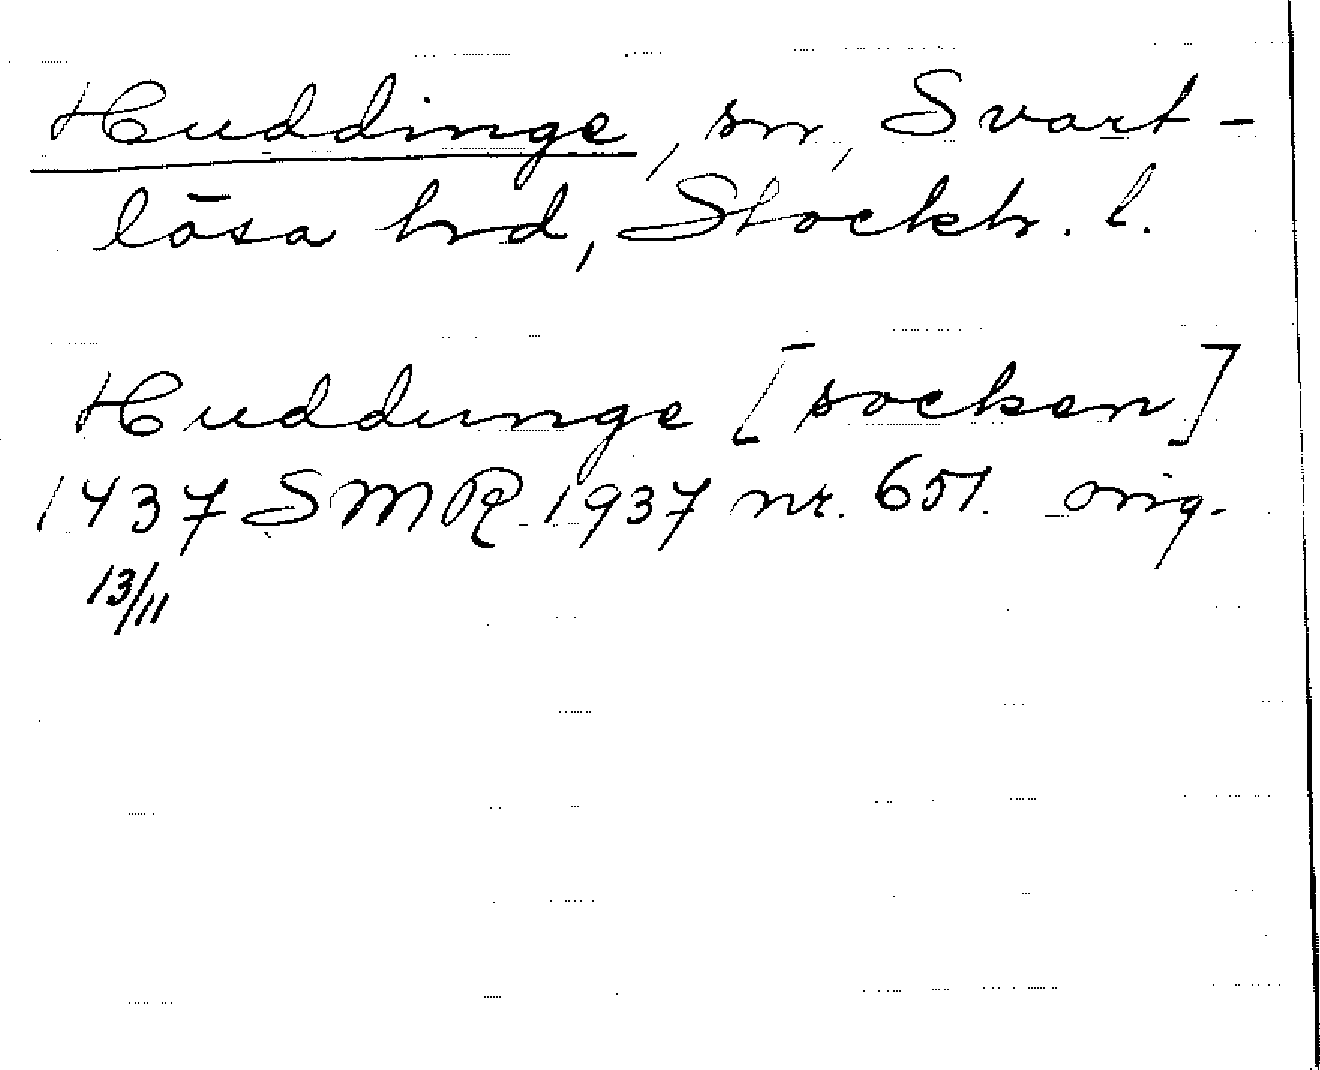 Huddinge, sn, Svart-
lösa hrd, Stockh. l.
Huddunge [socken]
1437 SMR 1937 nr. 651. orig.
13/11